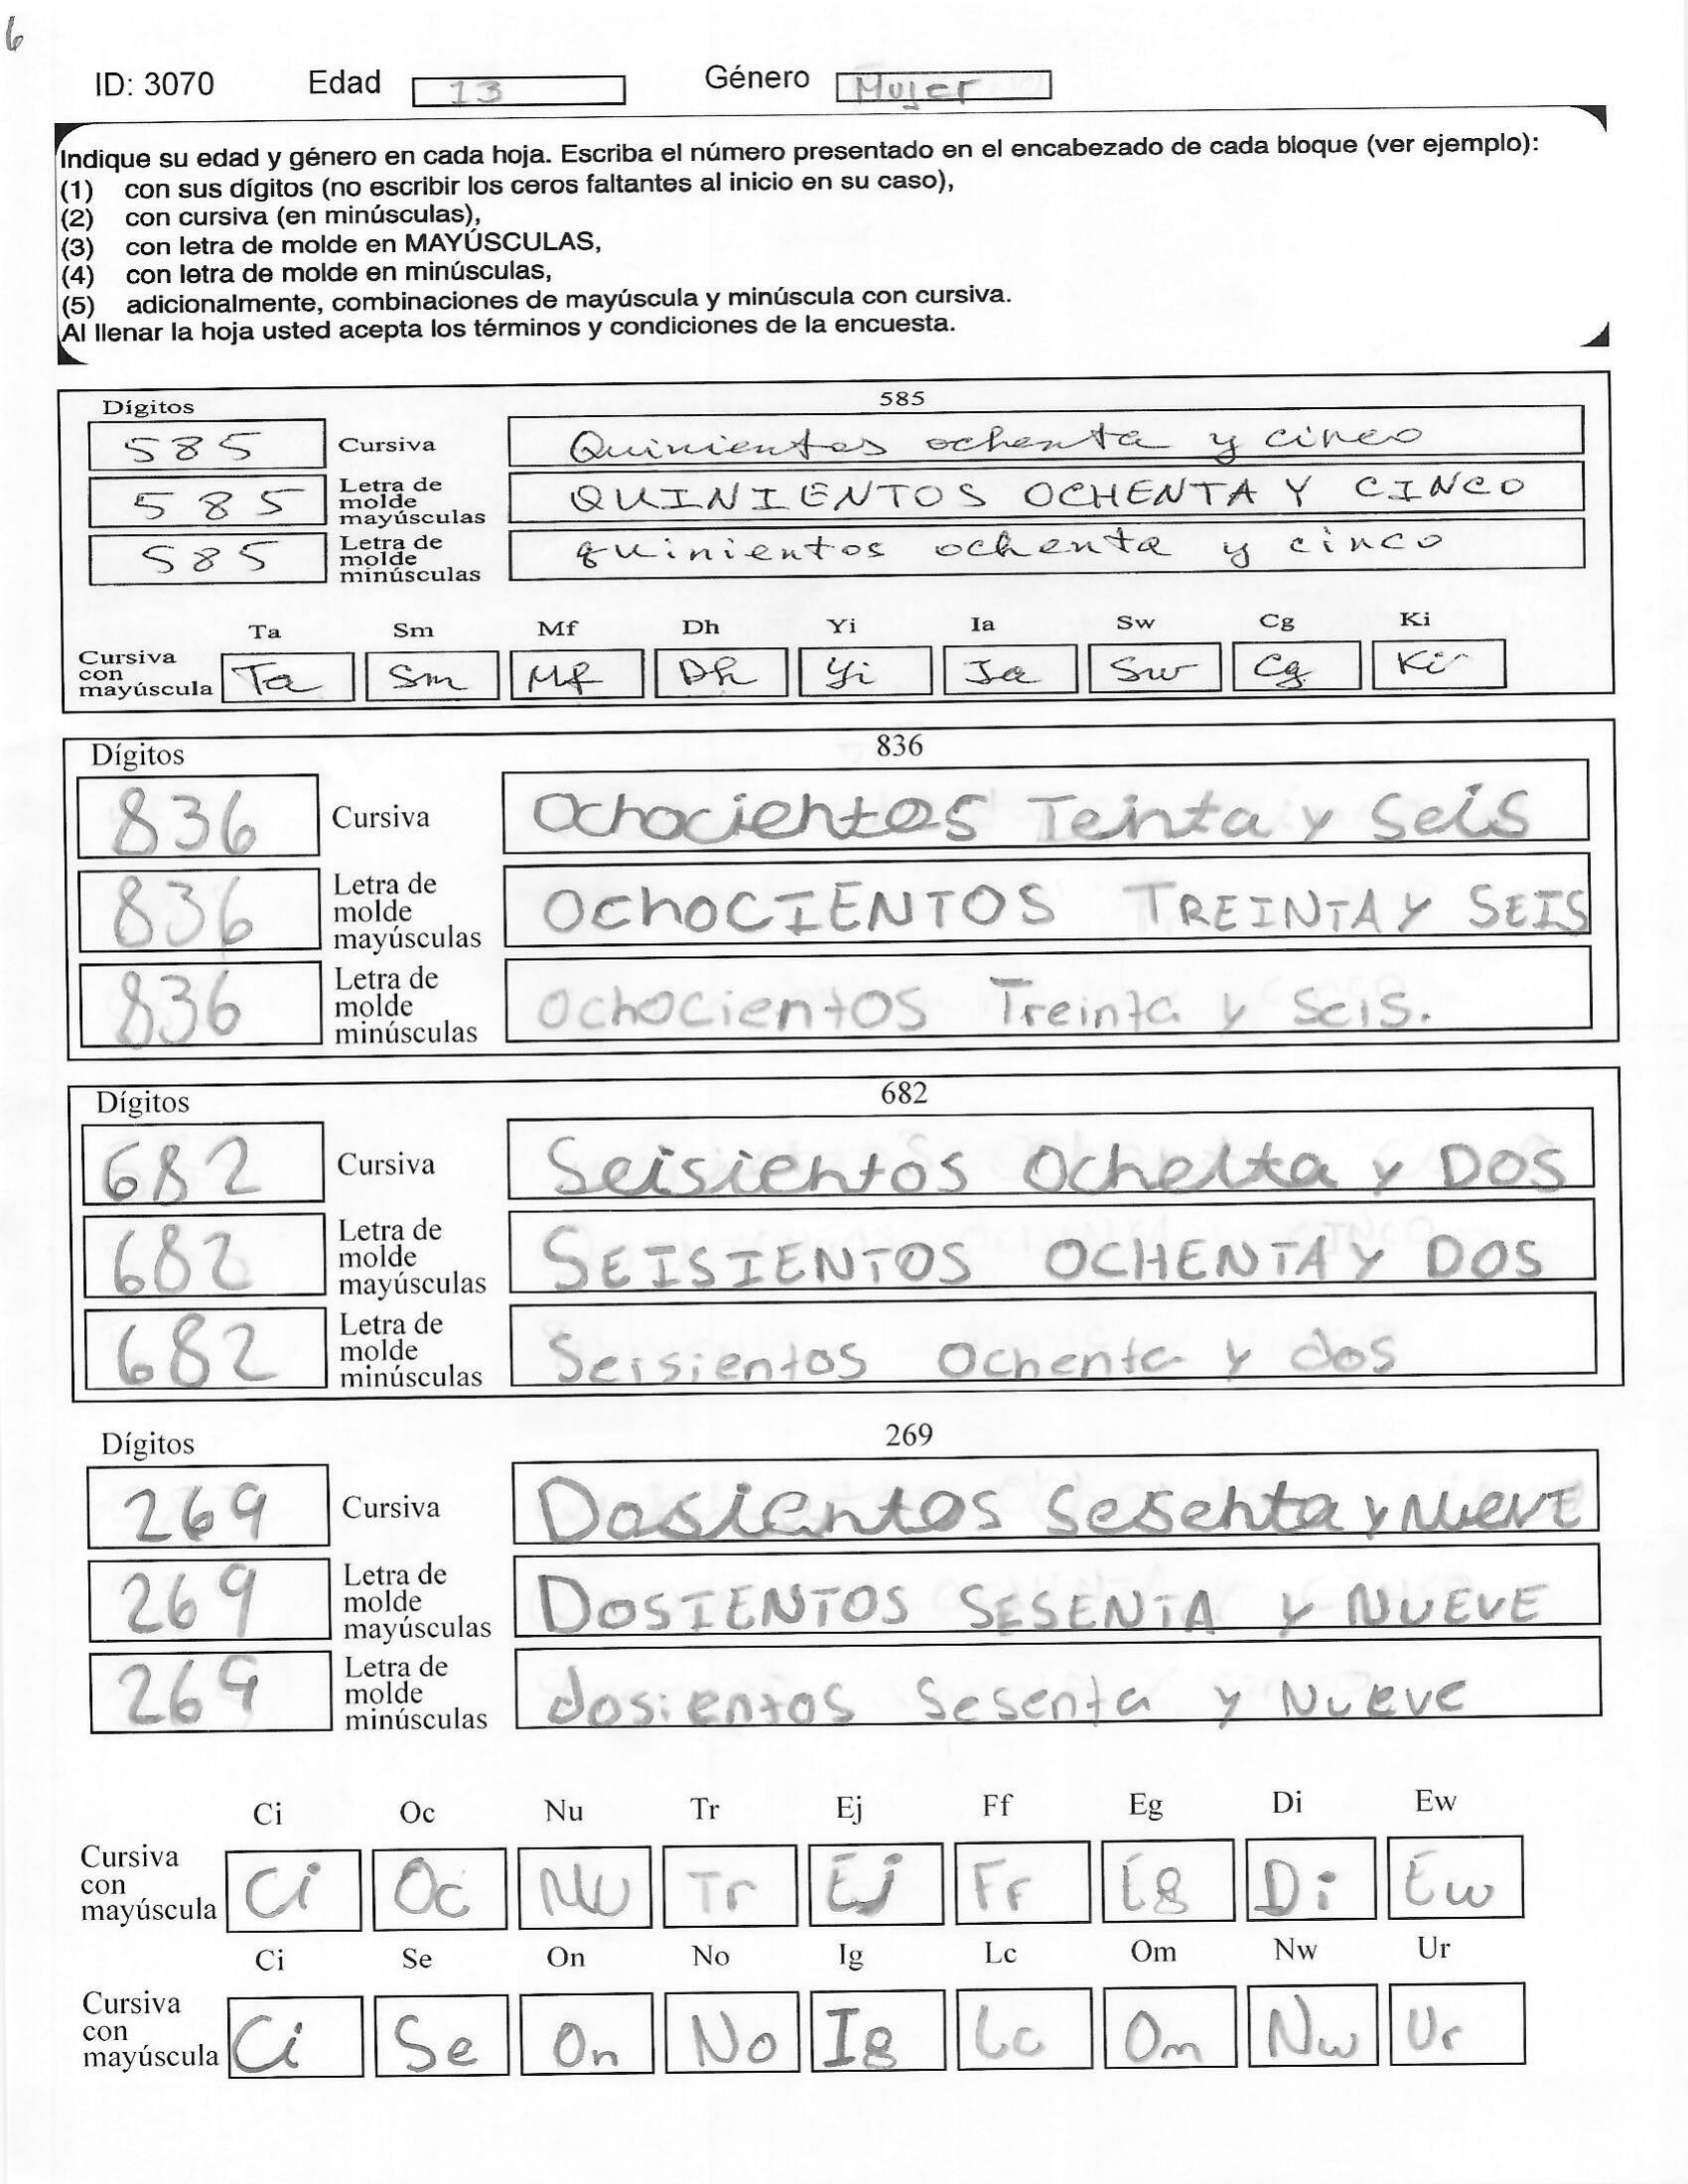 6
ID: 3070 Edad 13 Género Mujer
Indique su edad y género en cada hoja. Escriba el número presentado en el encabezado de cada bloque (ver ejemplo):
(1) con sus dígitos (no escribir los ceros faltantes al inicio en su caso),
(2) con cursiva (en minúsculas),
(3) con letra de molde en MAYÚSCULAS,
(4) con letra de molde en minúsculas,
(5) adicionalmente, combinaciones de mayúscula y minúscula con cursiva.
Al llenar la hoja usted acepta los términos y condiciones de la encuesta.
Dígitos 585
585 Cursiva Quinientos ochenta y cinco
585 Letra de molde mayúsculas QUINIENTOS OCHENTA Y CINCO
585 Letra de molde minúsculas quinientos ochenta y cinco
Ta Sm Mf Dh Yi Ia Sw Cg Ki
Cursiva con mayúscula Ta Sm Mf Dh Yi Ia Sw Cg Ki
Dígitos 836
836 Cursiva Ochocientos Teinta y Seis
836 Letra de molde mayúsculas OChOCIENTOS TREINTA Y SEIS
836 Letra de molde minúsculas OchOcientOS Treinta y Seis.
Dígitos 682
682 Cursiva Seisientos Ochelta y DOS
682 Letra de molde mayúsculas SEISIENTOS OCHENTA Y DOS
682 Letra de molde minúsculas Seisientos Ochenta y dos
Dígitos 269
269 Cursiva Dosientos Sesenta y Nueve
269 Letra de molde mayúsculas DOSIENTOS SESENTA Y NUEVE
269 Letra de molde minúsculas dosientos Sesenta y Nueve
Ci Oc Nu Tr Ej Ff Eg Di Ew
Cursiva con mayúscula Ci Oc Nu Tr Ej Ff Eg Di Ew
Ci Se On No Ig Lc Om Nw Ur
Cursiva con mayúscula Ci Se On No Ig Lc Om Nw Ur